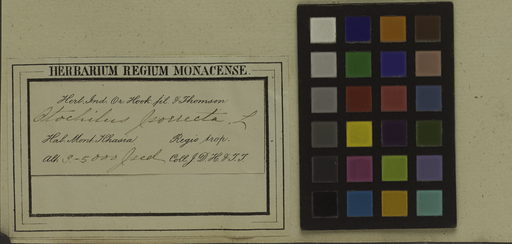 HERBARIUM REGIUM MONACENSE.
Herb. Ind. Or. Hook fil. & Thomson
porrecta, L
Hab. Mont. Khasia Regio trop.
Alt. 3-5000 ped. Coll. J. D. H. & T. T.